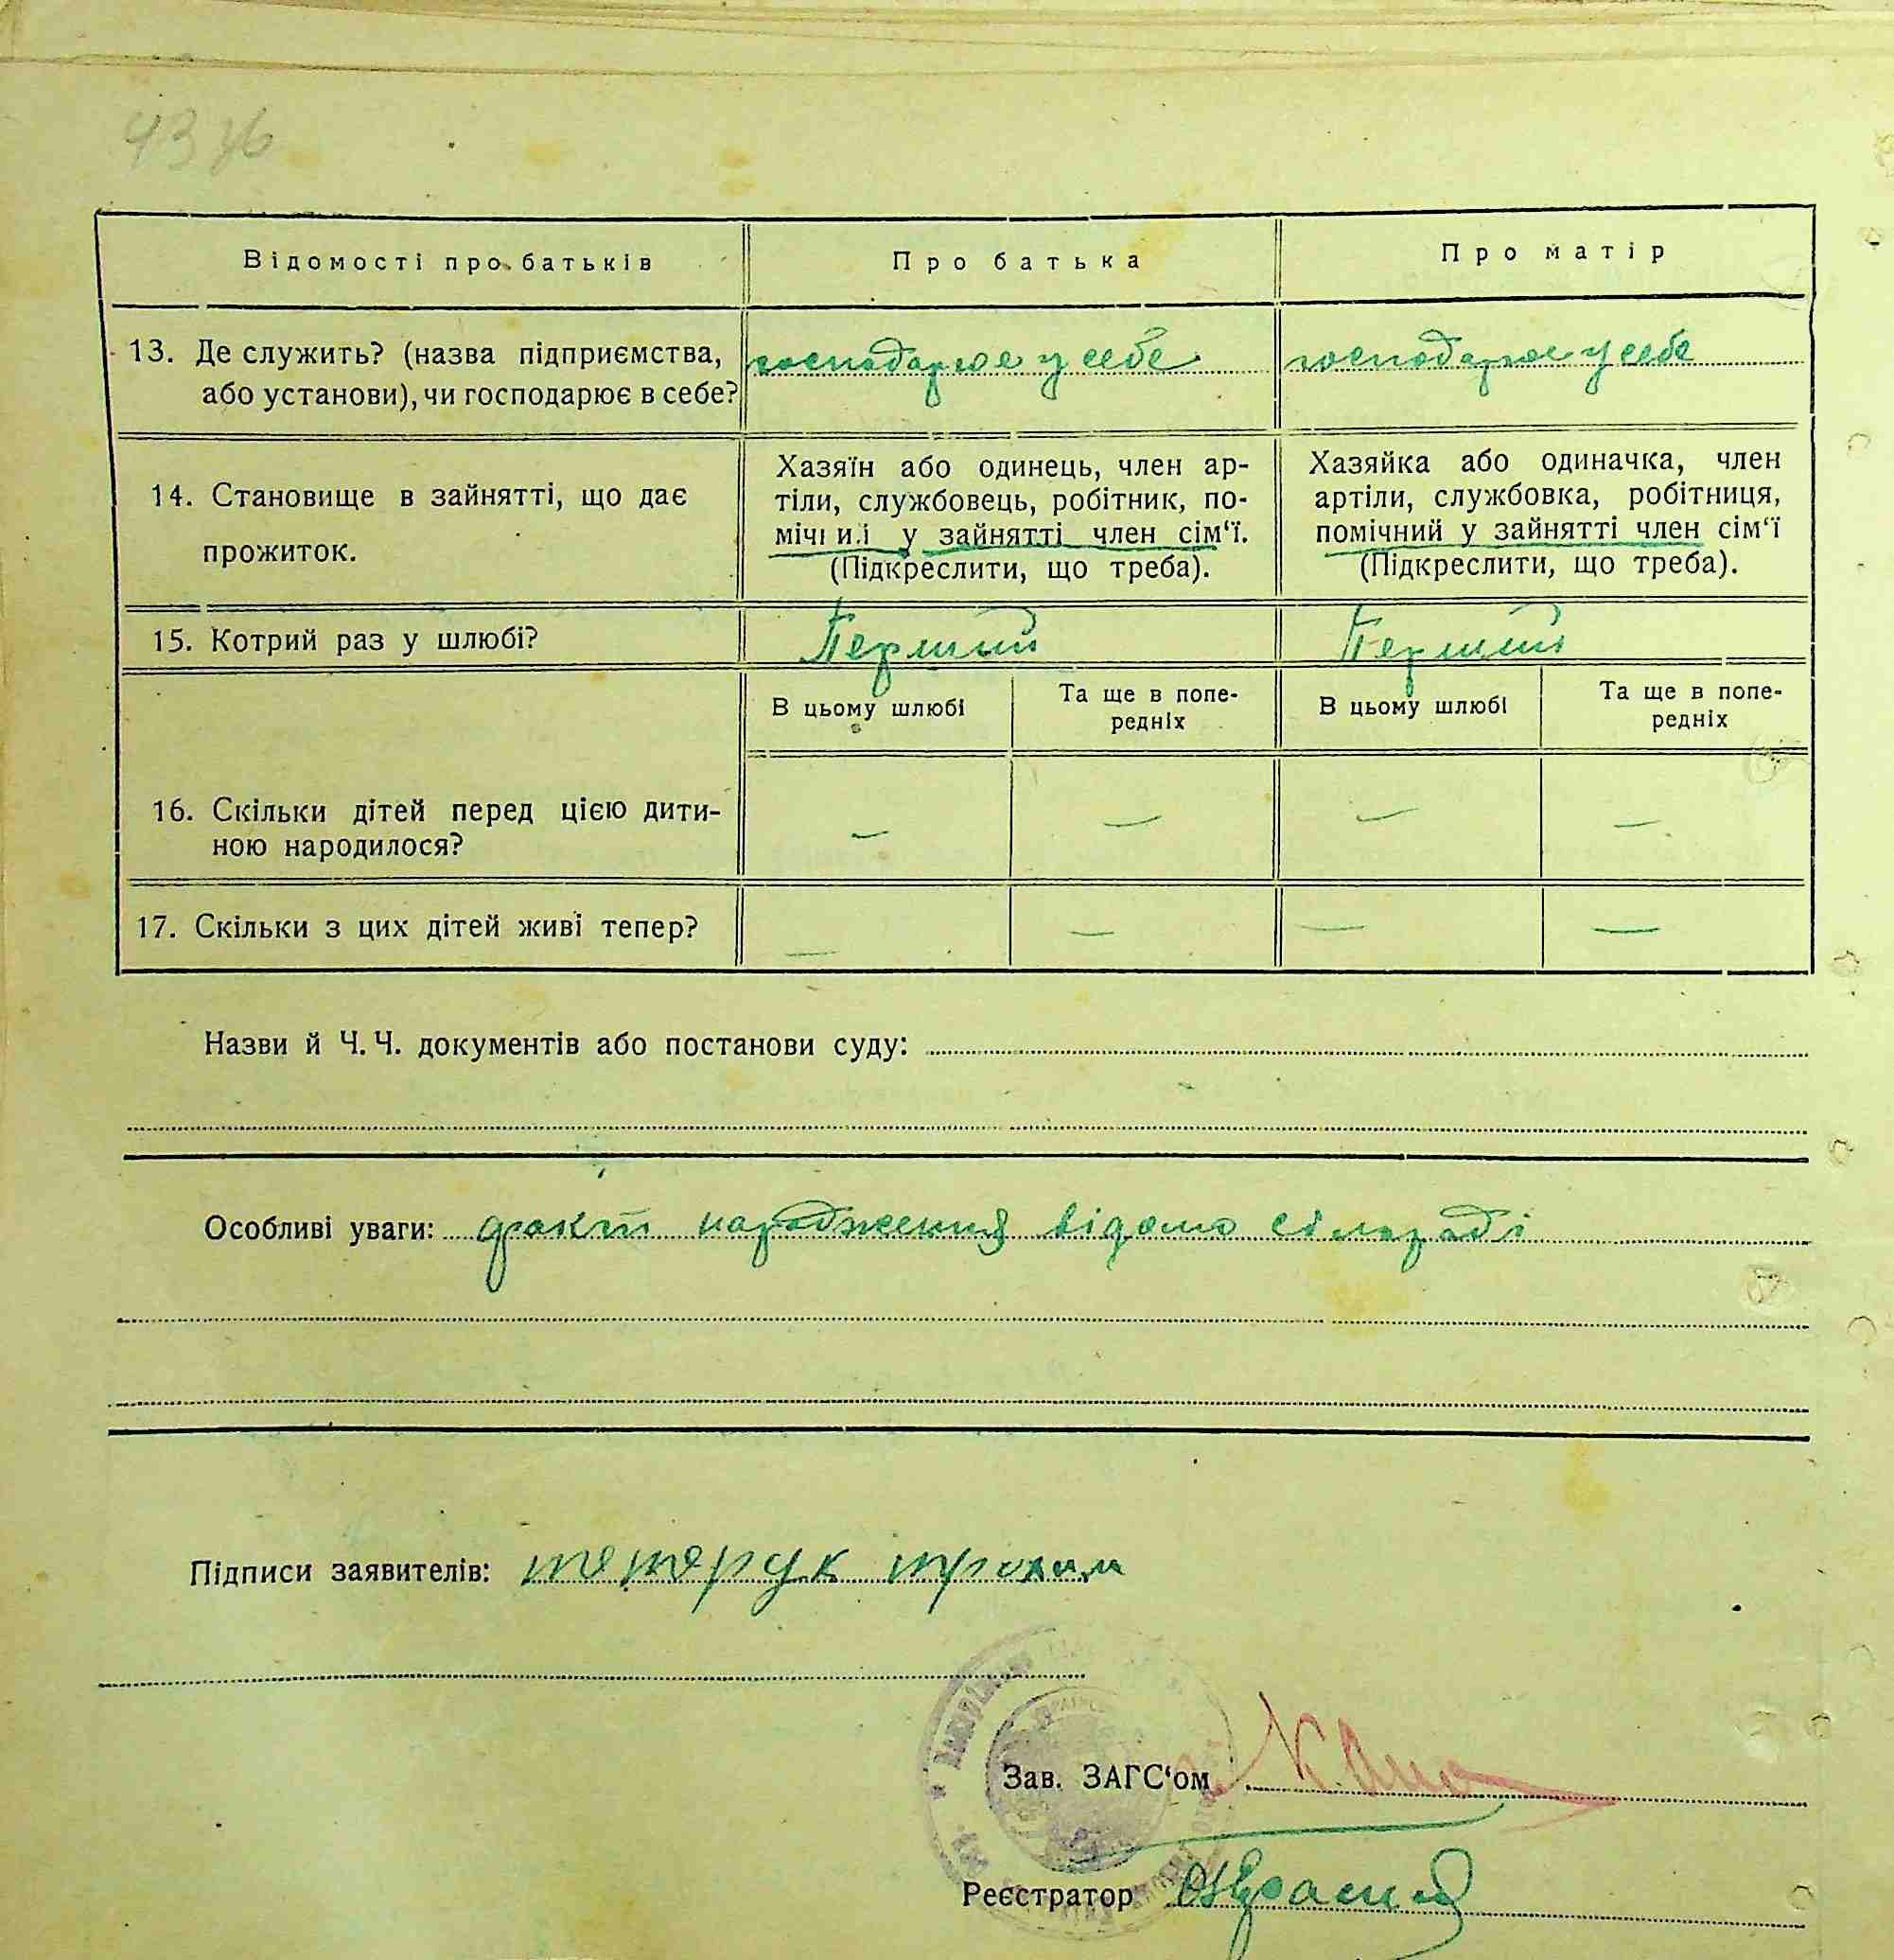 Відомості про батьків
Про батька
Про матір
13. Де служить? (назва підприємства,
або установи), чи господарює в себе?
господарює у себе
господарює у себе
14. Становище в зайнятті, що дає
прожиток.
Хазяїн або одинець, член ар-
тіли, службовець, робітник, по-
мічний у зайнятті член сім‘ї.
(Підкреслити, що треба).
Хазяйка або одиначка, член
артіли, службовка, робітниця,
помічний у зайнятті член сім‘ї
(Підкреслити, що треба).
15. Котрий раз у шлюбі?
Перший
Перший
В цьому шлюбі
Та ще в попе-
редніх
В цьому шлюбі
Та ще в попе-
редніх
16. Скільки дітей перед цією дити-
ною народилося?
—
—
—
—
17. Скільки з цих дітей живі тепер?
—
—
—
—
Назви й Ч. Ч. документів або постанови суду:
Особливі уваги: факт народження відомо сільраді
Підписи заявителів: тетерук трохим
Зав. ЗАГС‘ом
Реєстратор